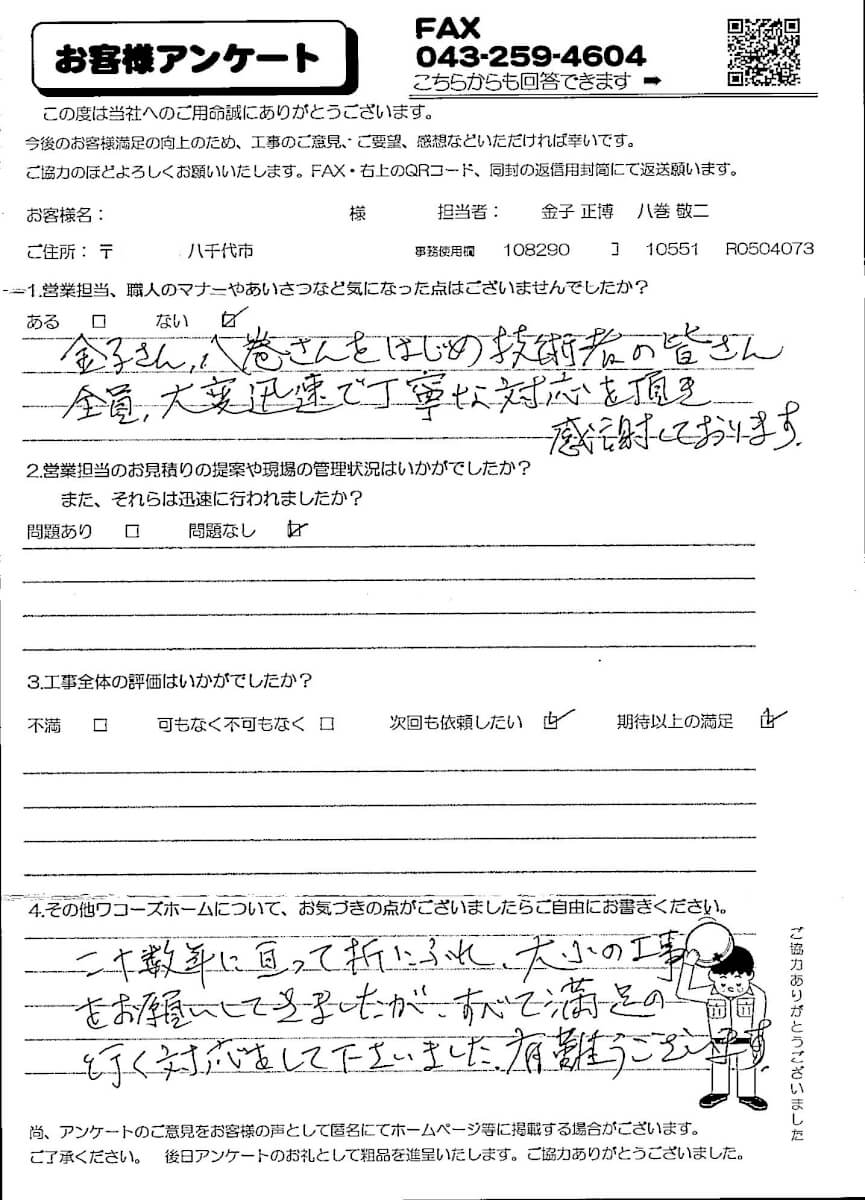 お客様アンケート
FAX
043-259-4604
こちらからも回答できます ➡
この度は当社へのご用命誠にありがとうございます。
今後のお客様満足の向上のため、工事のご意見、ご要望、感想などいただければ幸いです。
ご協力のほどよろしくお願いいたします。FAX・右上のQRコード、同封の返信用封筒にて返送願います。
お客様名： 様 担当者： 金子 正博 八巻 敬二
ご住所： 〒 八千代市 事務使用欄 108290 コ 10551 R0504073
1.営業担当、職人のマナーやあいさつなど気になった点はございませんでしたか？
ある □ ない ☑
金子さん,八巻さんをはじめ技術者の皆さん
全員,大変迅速で丁寧な対応を頂き
感謝しております.
2.営業担当のお見積りの提案や現場の管理状況はいかがでしたか？
また、それらは迅速に行われましたか？
問題あり □ 問題なし ☑
3.工事全体の評価はいかがでしたか？
不満 □ 可もなく不可もなく □ 次回も依頼したい ☑ 期待以上の満足 ☑
4.その他ワコーズホームについて、お気づきの点がございましたらご自由にお書きください。
二十数年に亘って折にふれ、大小の工事
をお願いしてきましたが、すべて満足の
行く対応をして下さいました.有難うございます.
ご協力ありがとうございました
尚、アンケートのご意見をお客様の声として匿名にてホームページ等に掲載する場合がございます。
ご了承ください。 後日アンケートのお礼として粗品を進呈いたします。ご協力ありがとうございました。